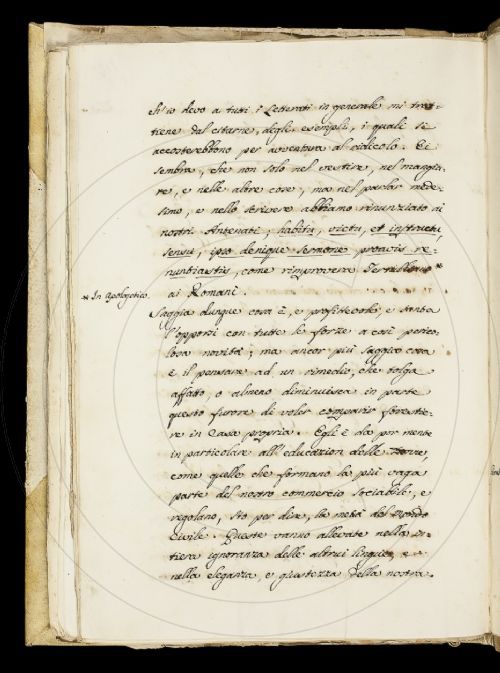 ch' io devo a tutti i Letterati in generale mi trat-
tiene dal citarne, degli esempli, i quali si
accosterebbono per avventura al ridicolo. Ei
sembra, che non solo nel vestire, nel mangia-
re, e nelle altre cose, ma nel parlar mede-
simo, e nello scrivere abbiamo rinunziato ai
nostri Antenati, habitu, victu, et instructu,
sensu, ipso denique sermone proavis re-
nuntiastis, come rimprovera Tertulliano *
ai Romani.
* In Apologetico.
Saggia dunque cosa è, e profittevole, e santa
l'opporsi con tutte le forze a così perico-
losa novità; ma ancor più saggia cosa
è il pensare ad un rimedio, che tolga
affatto, o almeno diminuisca in parte
questo furore di voler comparir forestie-
re in Casa propria. Egli è da por mente
in particolare all' educazion delle Donne,
come quelle che formano la più vaga
parte del nostro commercio sociabile, e
regolano, sto per dire, la metà del Mondo
Civile. Queste vanno allevate nella in-
tiera ignoranza delle altrui lingue, e
nella eleganza, e giustezza della nostra.